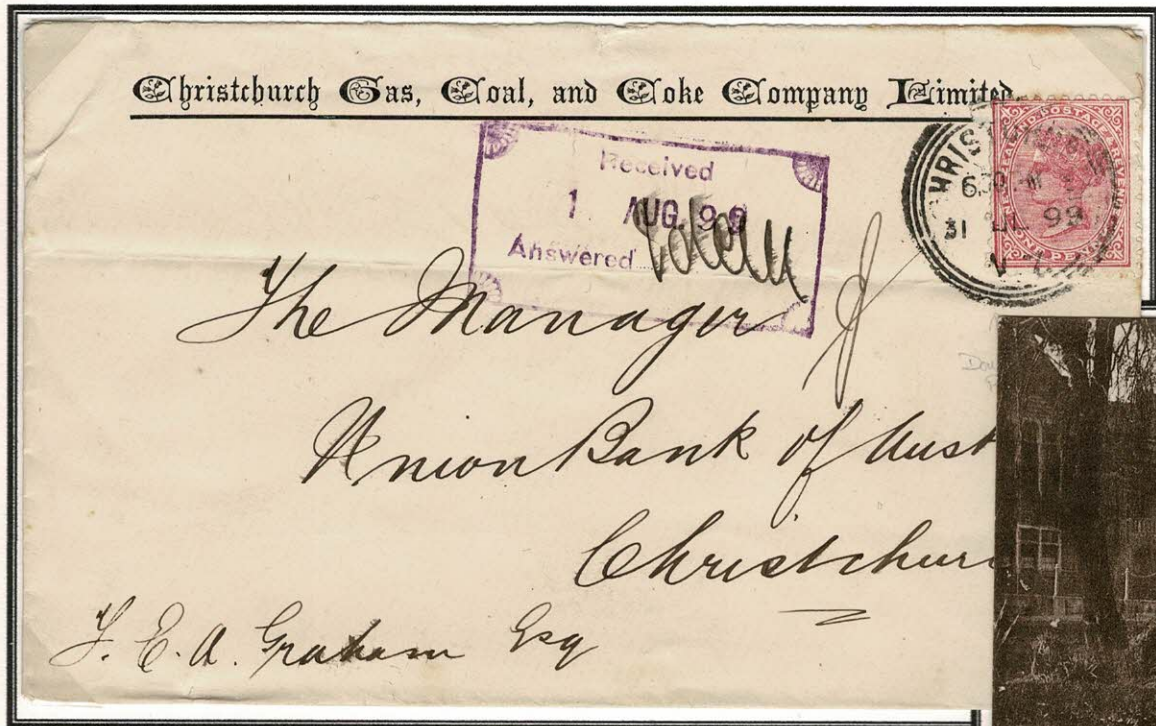 Christchurch Gas, Coal, and Coke Company Limited
Received
1 AUG. 99
Answered
31 JL 99
The Manager
Union Bank of Aust
Christchurc
F. E. A. Graham Esq